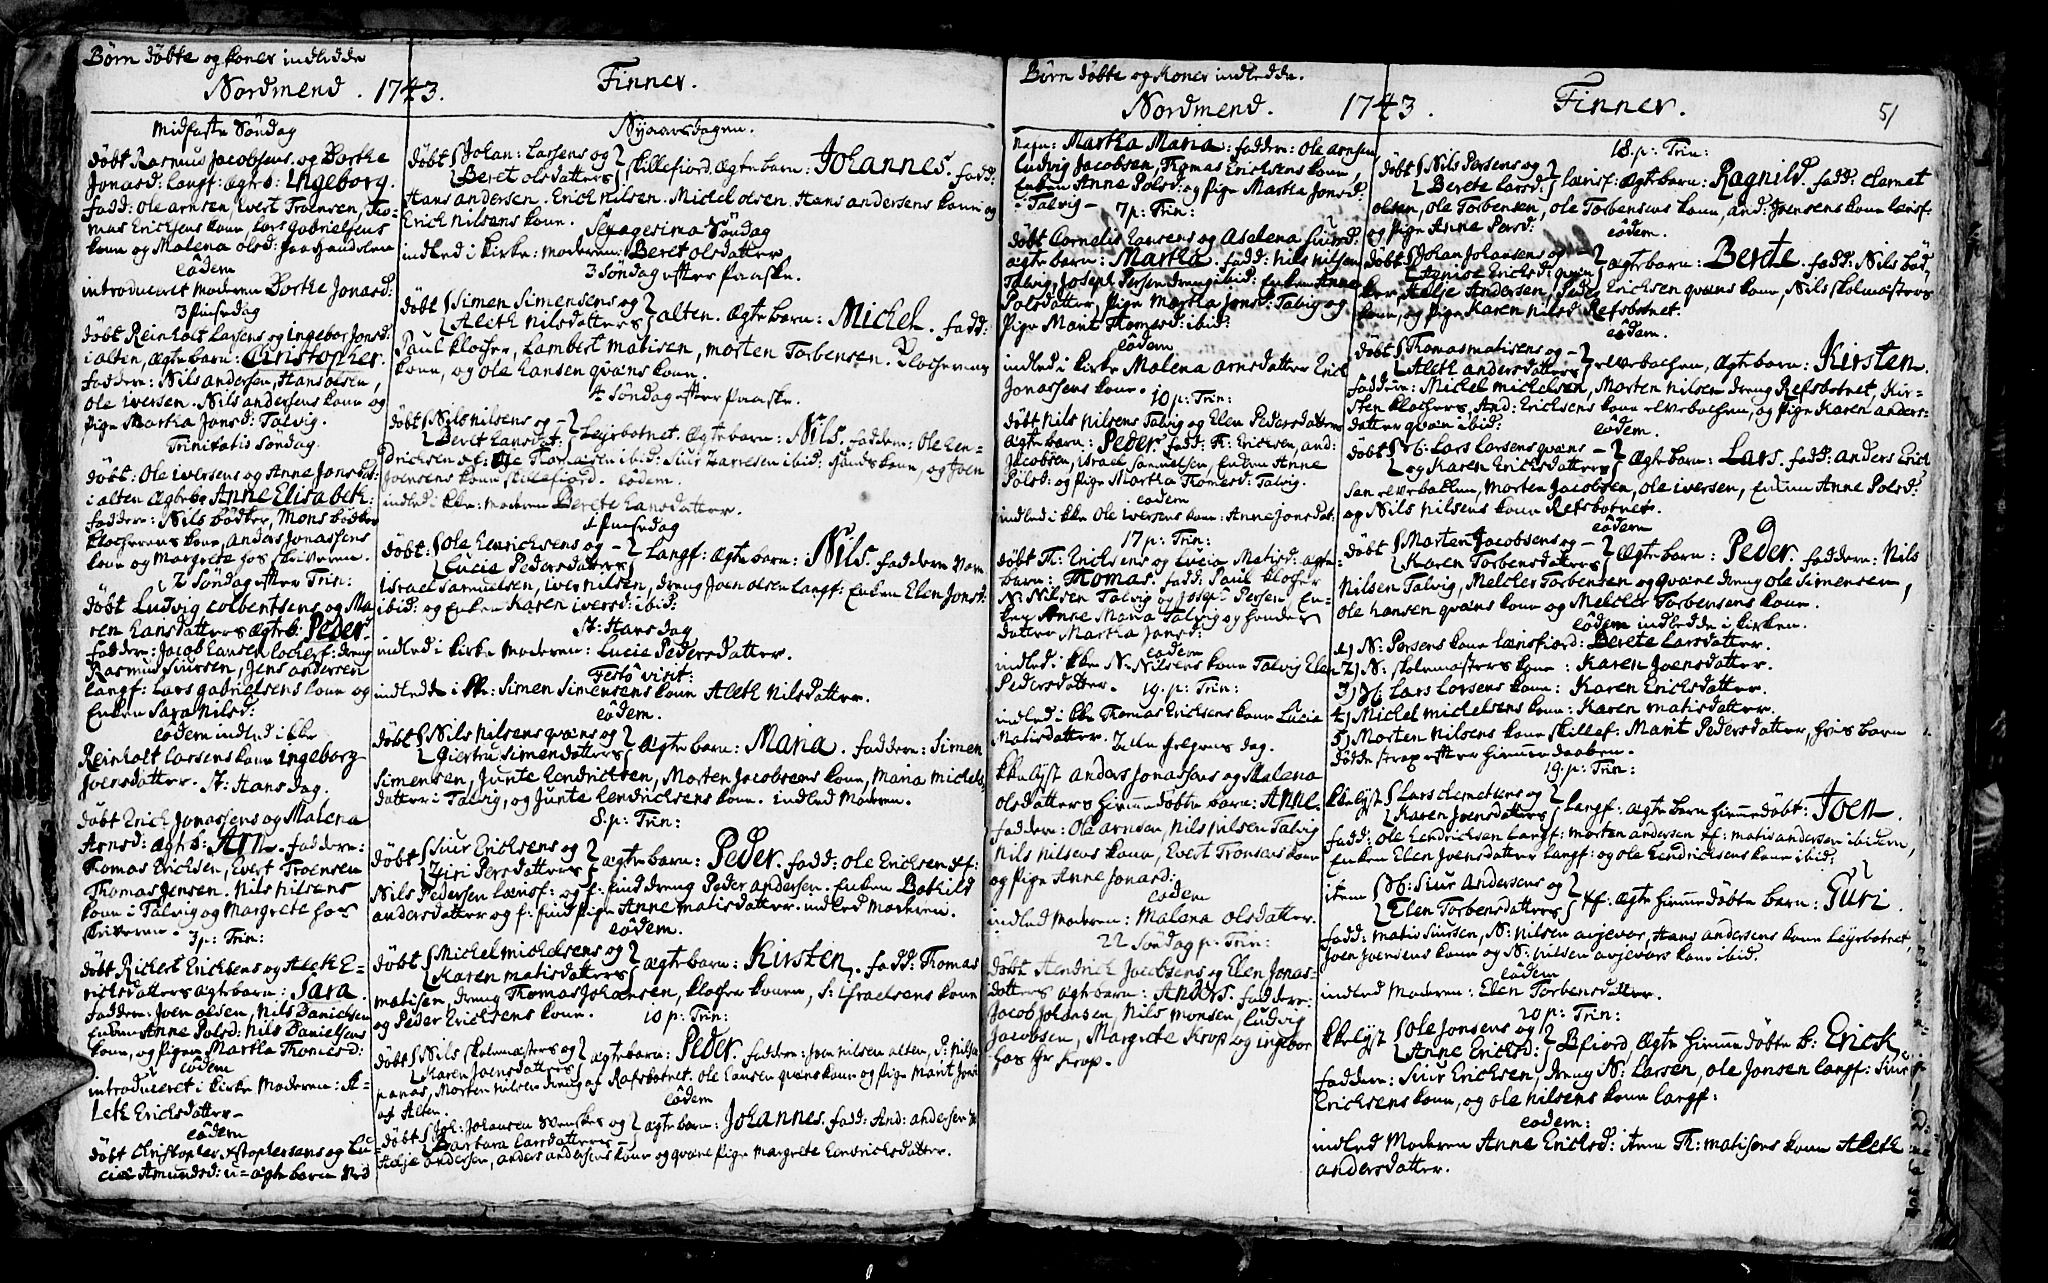 Børn døbte og koner indledde
Nordmend. 1743. Finner.
Midfaste Søndag
døbt Rasmus Jacobsens og Dorthe
Jonasd: Langf: ægte b: Ingeborg.
fadd: Ole Arnsen, Evert Troensen, Tho-
mas Erichsens kone, Lars Gabrielsens
kone og Malena Olsd:
eôdem
introduceret moderen Dorthe Jonasd:
3 Pinsedag
døbt Reinholt Larsens og Ingebor Joensd:
i Alten, ægte barn: Christopher.
faddern: Nils Andersen, Hans Olsen,
Ole Iversen. Nils Andersens kone og
Pige Martha Jonsd: Talvig.
Trinitatis Søndag.
døbt: Ole Iversens og Anne Jonsd:
i Alten ægte b: Anne Elisabeth:
faddern: Nils Bødker, Mons Bødker
Klockerens kone, Anders Jonassens
kone og Margrete hos Skriveren.
2 Søndag efter Trin:
døbt Ludvig Colbentsens og Ma-
ren Hansdatters ægte b: Peder.
faddern: Jacob Hansen dreng
Rasmus Siursen, Jens Andersen
Langf: Lars Gabrielsens kone og
Enken Sara Nilsd:
eôdem indled i kke
Reinholt Larsens kone Ingeborg
Joensdatter. St: Hans dag.
døbt Erich Jonassens og Malena
Arnsd: ægte b: Arn. faddern:
Thomas Erichsen, Evert Troensen
Thomas Jensen. Nils Nilsens
kone i Talvig og Margrete hos
Skriveren. 3 p: Trin:
døbt Richert Erichsens og Aleth E-
richsdatters ægte barn: Sara.
faddern: Joen Olsen, Nils Danielsen
Enken Anne Polsd: Nils Danielsens
kone, og Pigen Martha Thomesd:
eôdem
introduceret i kirke Moderen: A-
leth Erichsdatter
eôdem
døbt Christopher Astophersens og Lu-
cia Amundsd: u-ægte barn Ved
Nyaarsdagen.
døbt Johan: Larsens og
Beret Olsdatters Skillefiord. Ægte barn: Johannes. fadd:
Hans Andersen. Erich Nilsen. Michel Olsen. Hans Andersens kone og
Erich Nilsens kone.
Sexagesima Søndag
indled i kirke: moderen: Beret Olsdatter
3 Søndag efter Paaske.
døbt Simen Simensens og
Aleth Nilsdatters Alten. Ægte barn: Michel. fadd:
Paul Klocher, Lambert Matisen, Morten Torbensen. Klocherens
kone, og Ole Hansen qvæns kone.
4 Søndag efter Paaske.
døbt Nils Nilsens og
Beret Hansdat: Leyrbotnet. Ægte barn: Nils. faddern: Ole Hen-
drichsen Ole Thomesen ibid: Siur ibid: kone, og Joen
Joensens kone Skillefiord. eôdem.
indled i kke: moderen Berete Hansdatter.
1 Pinsedag
døbt: Ole Henrichsens og
Lucie Pedersdatters Langf: ægte barn: Nils. faddern
Israel Samuelsen, Iver Nilsen, dreng Joen Olsen Langf: Enken Elen Jonsd:
ibid: og Enken Karen Iversd: ibid:
St: Hans dag
indled i kirke moderen: Lucie Pedersdatter.
Festo visit:
indled i kke: Simen Simensens kone Aleth Nilsdatter.
eôdem.
døbt Nils Nilsens qvæns og
Giertru Simensdatters Ægte barn: Maria. faddern: Simen
Simensen, Junte Hendrichsen, Morten Jacobsens kone, Maria Michels
datter i Talvig, og Junte Hendrichsens kone. indled Moderen.
8. p: Trin:
døbt Siur Erichsens og
Ziri Persdatters ægte barn: Peder. fadd: Ole Erichsen
Nils Pedersen Lærisf: og dreng Peder Andersen. Enken Bothild
Andersdatter og Pige Anne Matisdatter. indled Moderen.
eôdem.
døbt Michel Michelsens og
Karen Matisdatters ægte barn: Kirsten. fadd: Thomas
Matisen, dreng Thomas Johansen, Klocher konen, S: Israelsens kone
og Peder Erichsens kone. 10 p: Trin:
døbt Nils Skolemæsters og
Karen Joensdatters ægte barn: Peder. faddern: Joen Nilsen Alten, P: Nilsen
Morten Nilsen dreng af Rafsbotnet. Ole Hansen qvæns kone og Pige Marit
af Alten. eôdem
døbt Joh: Johansen Svenskes og
Barbara Larsdatters ægte barn: Johannes. fadd: And: Andersen
Helje Andersen, Anders Andersens kone og qvæne Pige Margrete Hendrichsdatter.
Børn døbte og koner indledde.
Nordmend. 1743. Finner. 51
Martha Maria: faddern: Ole Arnsen
Ludvig Jacobsen, Thomas Erichsens kone,
Enken Anne Polsd: og Pige Martha Jonsd:
i Talvig
7 p: Trin:
døbt Cornelis Hansens og Aselena Siursd:
ægte barn: Martha. fadd: Nils Nilsen
Talvig, Joseph Persen dreng ibid: Enken Anne
Polsdatter, Pige Martha Jonsd: Talvig og
Pige Marit Thomasd: ibid:
eôdem
indled i kirke Malena Arnsdatter Erich
Jonassens kone.
10 p: Trin:
døbt Nils Nilsens Talvig og Elen Pedersdatters
ægte barn: Peder. fadd: Th: Erichsen, And:
Jacobsen, Israel Samuelsen, Enken Anne
Polsd: og Pige Martha Thomesd: Talvig.
eodem
indled i kke Ole Iversens kone: Anne Jonsdat:
17 p: Trin:
døbt Th: Erichsens og Lucia Matisd: ægte
barn: Thomas. fadd: Paul Klocher
N: Nilsen Talvig og Joseph Persen En-
ken Anne Maria Talvig og hendes
datter Martha Jonsd:
eodem
indled i kke N: Nilsens kone Talvig Elen
Pedersdatter.
19. p: Trin:
indled i kke Thomas Erichsens kone Lucia
Matisdatter. Helgens dag.
kkelyst Anders Jonassens og Malena
Olsdatters himmedøbte barn: Anne.
faddern: Ole Arnsen, Nils Nilsen Talvig
Nils Nilsens kone, Evert Tronsens kone
og Pige Anne Jonasd:
eodem
indled Moderen: Malena Olsdatter.
22 Søndag p: Trin:
Døbt Hendrich Jacobsens og Elen Jonas-
datters ægte barn: Anders. faddern:
Jacob Johansen, Nils Monsen, Ludvig
Jacobsen, Margrete Krop og Ingebor
hos Hr Krop.
18. p: Trin:
døbt Nils Persens og
Berete Larsd: Lærisf: ægte barn: Ragnild. fadd: Clemet
Olsen, Ole Torbensen, Ole Torbensens kone, And: Joensens kone Lærisf:
og Pige Anne Persd: eôdem.
døbt Johan Johansens og
Agnise Erichsd: qvæn ægte barn: Berete. fadd: Nils Bød
ker, Helje Andersen, Peder Erichsen qvæns kone, Nils Skolmæsters
kone, og Pige Karen Nilsd Refsbotnet.
eôdem.
døbt Thomas Matisens og
Aleth Andersdatters Elvebachen, Ægte barn: Kirsten.
faddern: Michel Michelsen, Morten Nilsen dreng Refsbotnet, Kir-
sten Klochers, And: Erichsens kone Elvebachen, og Pige Karen Anders-
datter qvæn ibid: eôdem.
døbt Lars Larsens qvæns
og Karen Erichsdatters ægte barn: Lars. fadd: Anders Erich
sen Elvebachen, Morten Jacobsen, Ole Iversen, Enken Anne Polsd:
og Nils Nilsens kone Refsbotnet.
eôdem
døbt Morten Jacobsens og
Karen Torbensdatters Ægte barn: Peder. faddern: Nils
Nilsen Talvig, Melcher Torbensen og qvæne dreng Ole Simensen,
Ole Hansen qvæns kone og Melcher Torbensens kone.
eôdem indledde i kirken.
1) N: Persens kone Lærisfiord: Berete Larsdatter.
2) N: Skolemæsters kone: Karen Joensdatter.
3) Lars Larsens kone: Karen Erichsdatter.
4) Michel Michelsens kone: Karen Matisdatter.
5) Morten Nilsens kone Skillef: Marit Pedersdatter, hvis barn
døde strax efter himmedaaben.
19. p: Trin:
kkelyst Lars Clemetsens og
Karen Joensdatters Langf: ægte barn himmedøbt: Joen.
fadd: Ole Hendrichsen Langf: Morten Andersen Matis Andersen ibidem,
Enken Elen Joensdatter Langf: og Ole Hendrichsens kone ibid:
item Siur Andersens og
Elen Torbensdatters ægte himmedøbte barn: Guri.
fadd: Matis Siursen, N: Nilsen Avjevar, Hans Andersens kone Leyrbotnet,
Joen Joensens kone og N: Nilsen Avjevars kone ibid:
eôdem
indled Moderen: Elen Torbensdatter.
20 p: Trin:
kkelyst Ole Jonsens og
Anne Erichsd: Bfiord, Ægte himmedøbte b: Erich
faddern: Siur Erichsen, dreng N: Larsen, Ole Jonsen Langf: Siur
Erichsens kone, og Ole Nilsens kone Langf:
eodem:
indled Moderen Anne Erichsd: item Th: Matisens kone Aleth
Andersdatter.